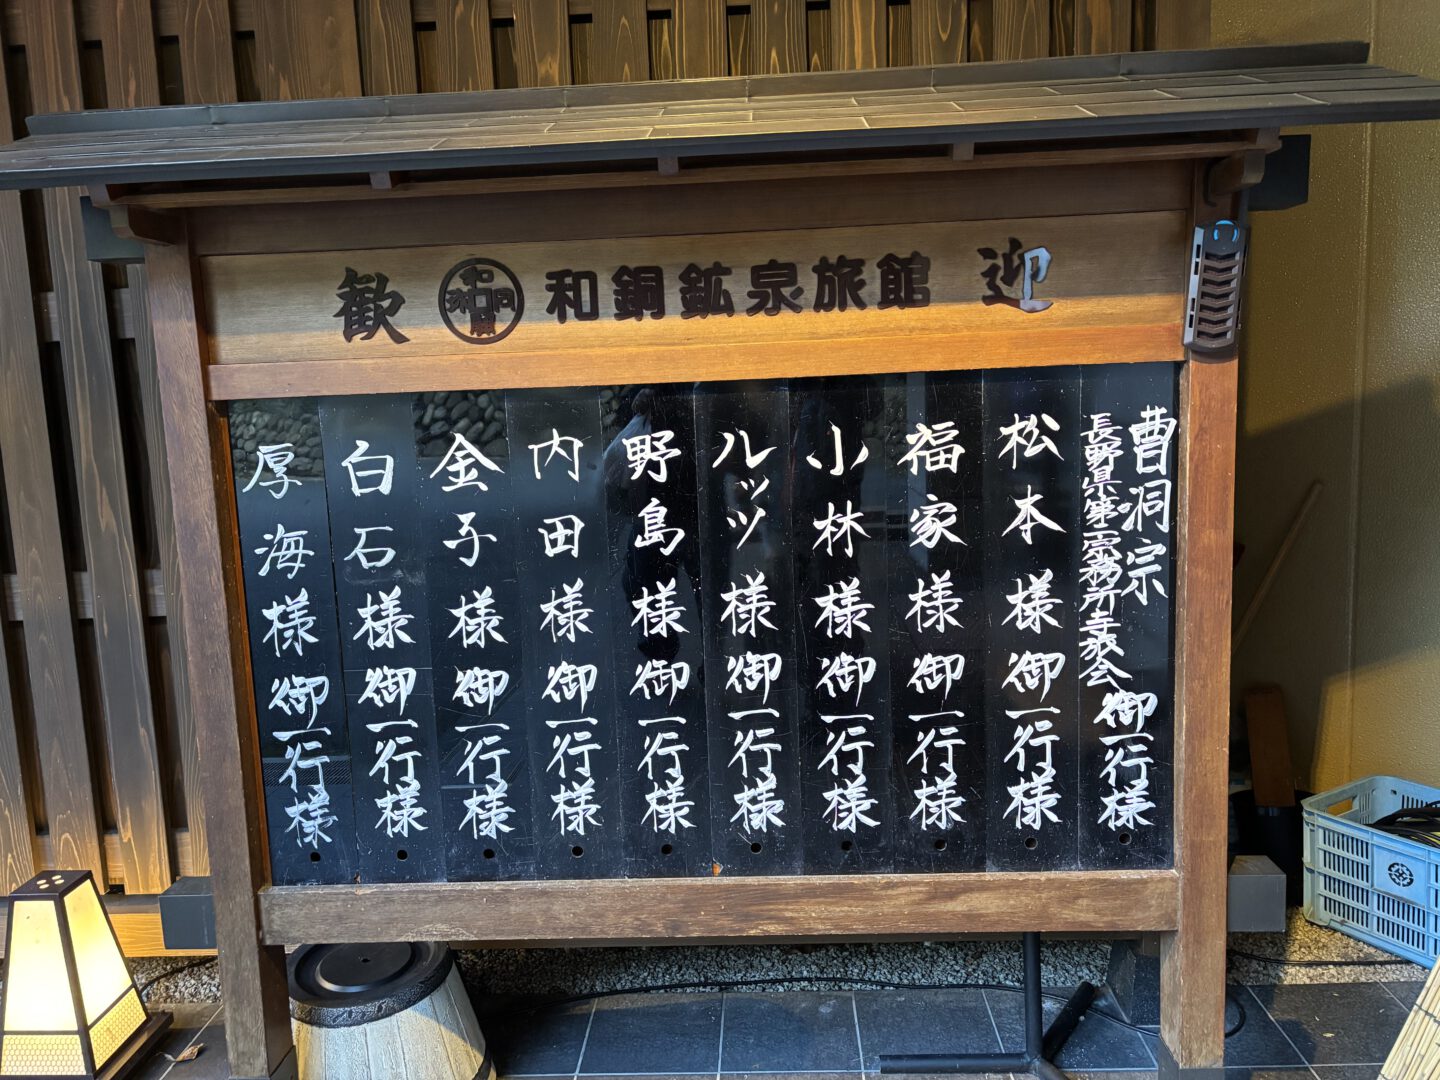 歓 和銅鉱泉旅館 迎
曹洞宗
長野県第一宗務所寺族会 御一行様
松本様御一行様
福家様御一行様
小林様御一行様
ルッツ様御一行様
野島様御一行様
内田様御一行様
金子様御一行様
白石様御一行様
厚海様御一行様